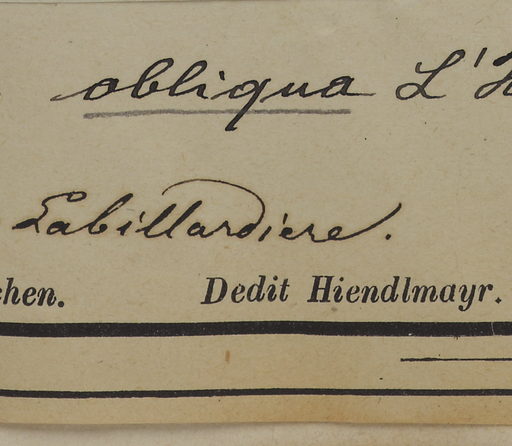 obliqua L'H
Labillardiere.
chen. Dedit Hiendlmayr.